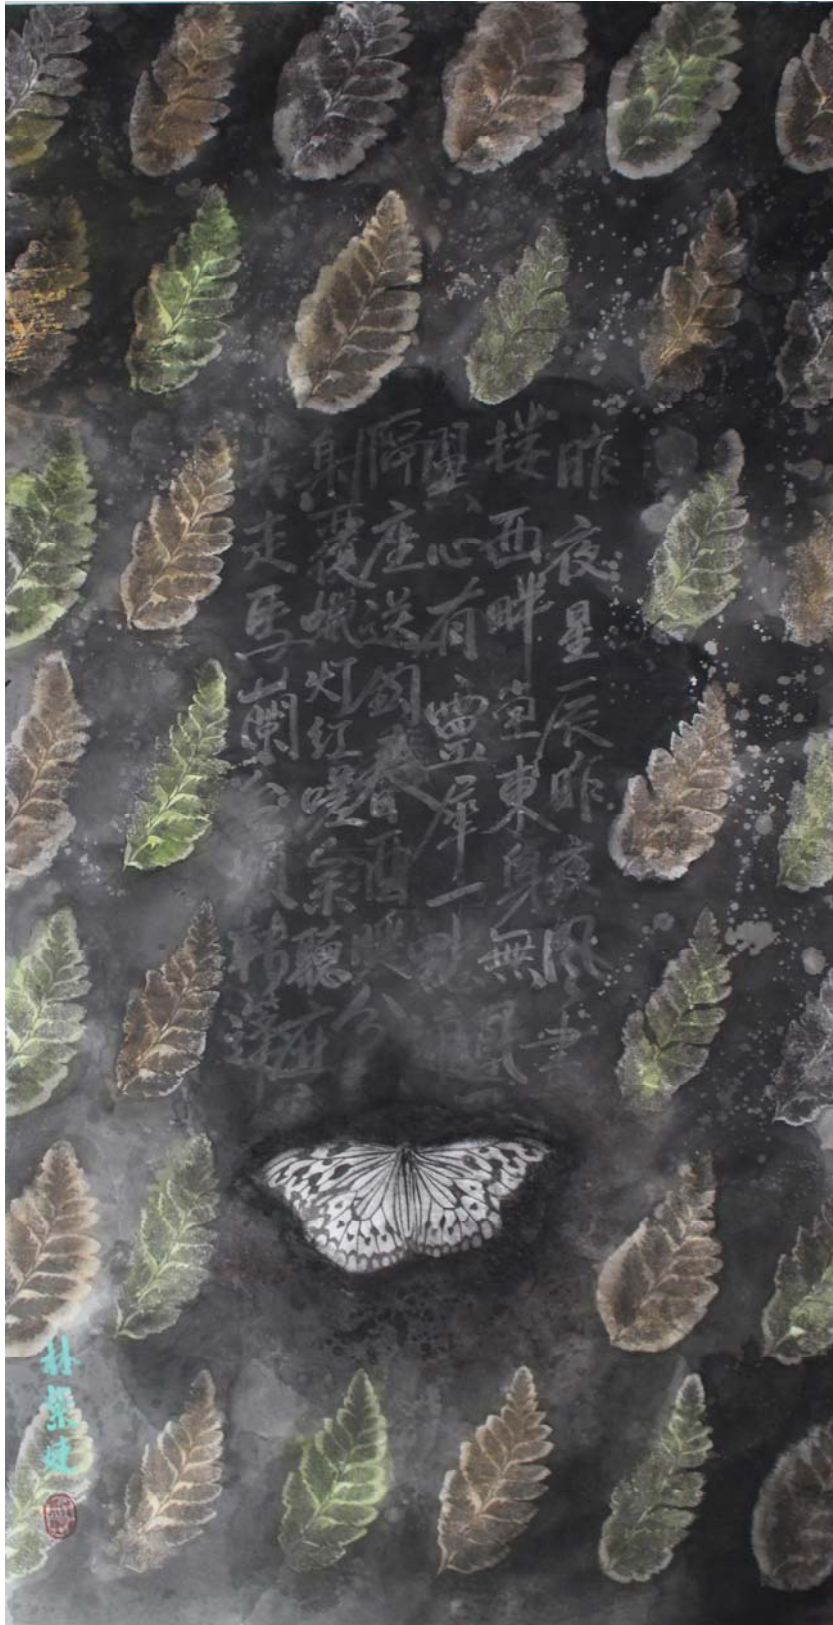 昨夜星辰昨夜风
楼西畔堂東身無
翼心有靈犀一點通
隔座送鈎春酒暖分
射覆蜡灯红嗟余聽应
去走馬蘭台類轉蓬
林
婕